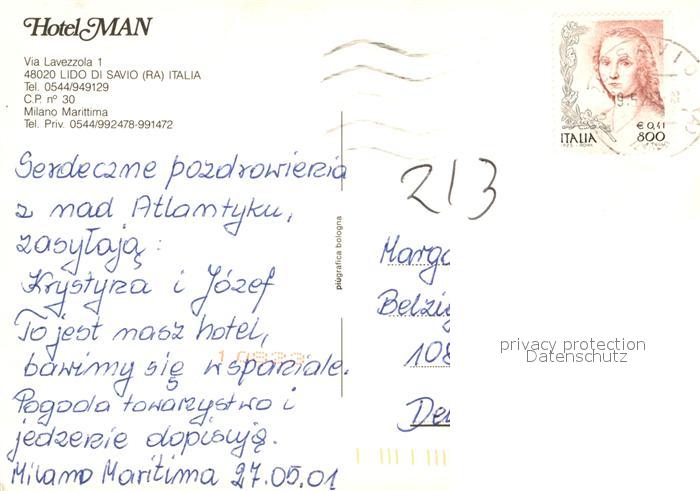 Hotel MAN
Via Lavezzola 1
48020 LIDO DI SAVIO (RA) ITALIA
Tel. 0544/949129
C.P. n° 30
Milano Marittima
Tel. Priv. 0544/992478-991472
Serdeczne pozdrowienia
z nad Atlantyku,
zasyłają:
Krystyna i Józef
To jest nasz hotel,
bawimy się wspaniale.
Pogoda towarzystwo i
jedzenie dopisują.
Milano Maritima 27.05.01
piugrafica bologna
€ 0,41
ITALIA 800
213
Margo
Belzig
108
De
privacy protection
Datenschutz